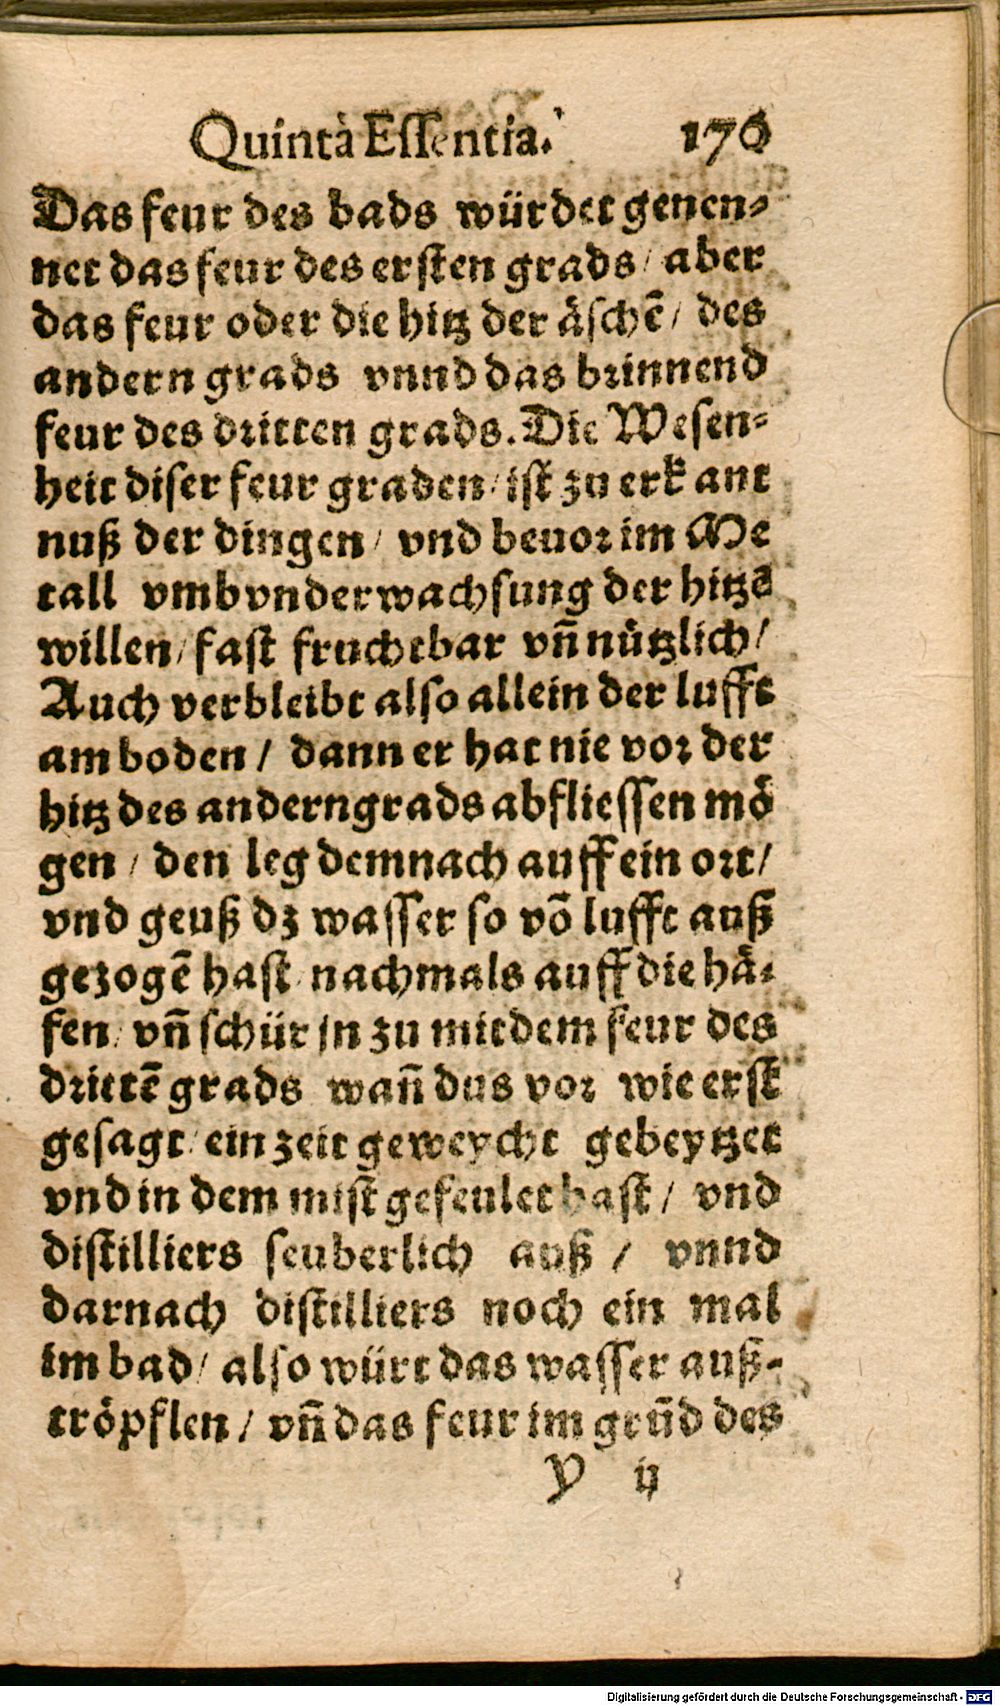 Quintà Essentia. 176
Das feur des bads würdet genen-
net das feur des ersten grads / aber
das feur oder die hitz der äschẽ / des
andern grads vnnd das brinnend
feur des dritten grads. Die Wesen-
heit diser feur graden / ist zu erkant
nuß der dingen / vnd beuor im Me
tall vmb vnderwachsung der hitzẽ
willen / fast fruchtbar vñ nützlich /
Auch verbleibt also allein der lufft
am boden / dann er hat nie vor der
hitz des andern grads abfliessen mö
gen / den leg demnach auff ein ort /
vnd geuß dz wasser so võ lufft auß
gezogẽ hast nachmals auff die hä-
fen / vñ schür in zu mit dem feur des
drittẽ grads wañ dus vor wie erst
gesagt / ein zeit geweycht gebeytzet
vnd in dem mist gefeulet hast / vnd
distilliers seuberlich auß / vnnd
darnach distilliers noch ein mal
im bad / also würt das wasser auß-
tröpflen / vñ das feur im grũd des
Y ij
Digitalisierung gefördert durch die Deutsche Forschungsgemeinschaft - DFG